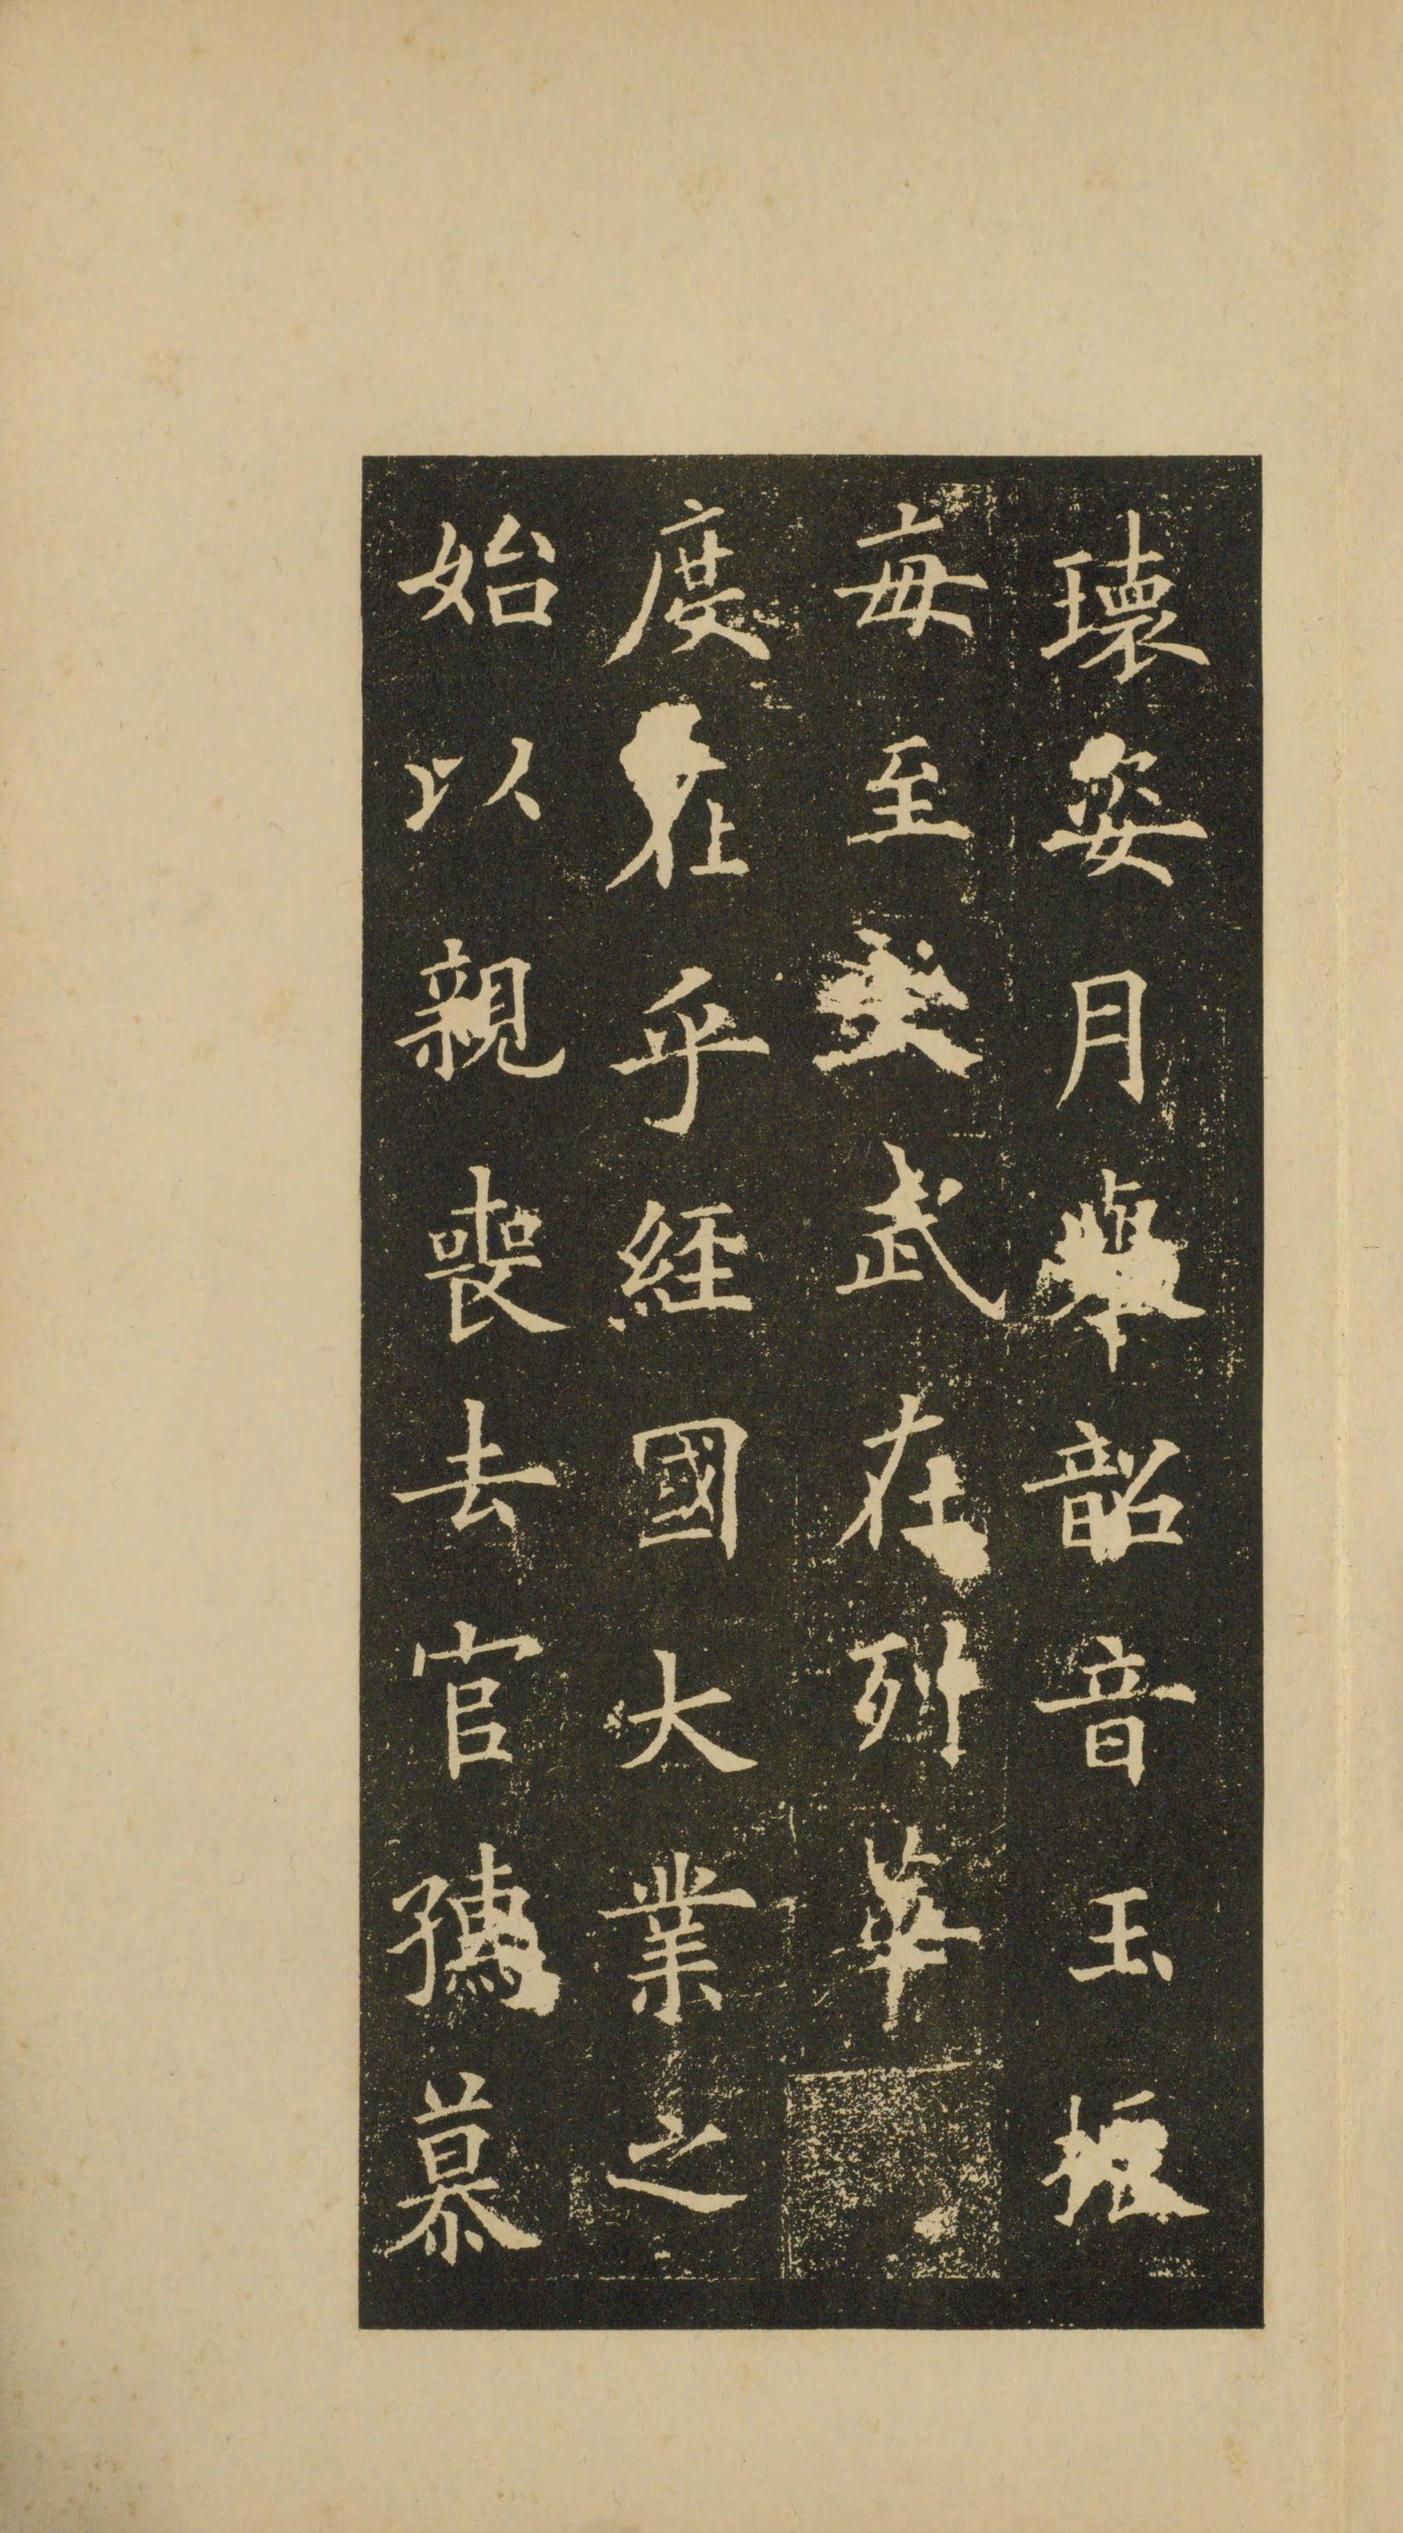 瓌姿月舉韶音玉振
每至文武在列華
虛在乎經國大業之
始以親喪去官孺慕